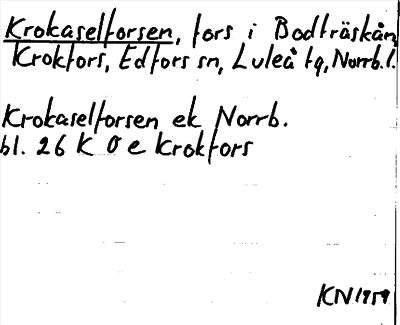 Krokaselforsen, fors i Bodträskån,
Krokfors, Edfors sn, Luleå tg, Norrb.l.
Krokaselforsen ek Norrb.
bl. 26 K O e Krokfors
KN 1959